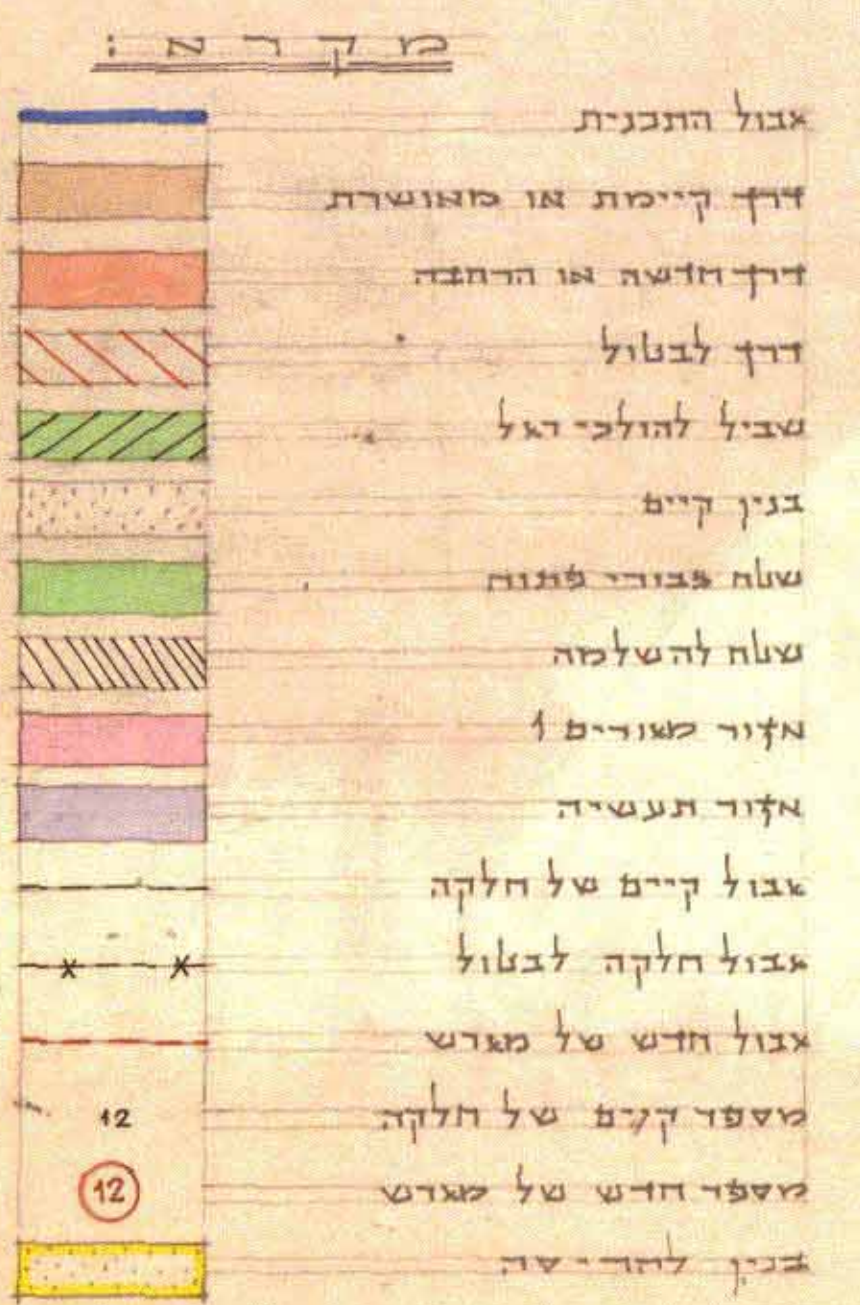 מקרא:
גבול התכנית
דרך קיימת או מאושרת
דרך חדשה או הרחבה
דרך לבטול
שביל להולכי רגל
בנין קיים
שטח צבורי פתוח
שטח להשלמה
אזור מגורים 1
אזור תעשיה
גבול קיים של חלקה
גבול חלקה לבטול
גבול חדש של מגרש
12 מספר קיים של חלקה
12 מספר חדש של מגרש
בנין להריסה